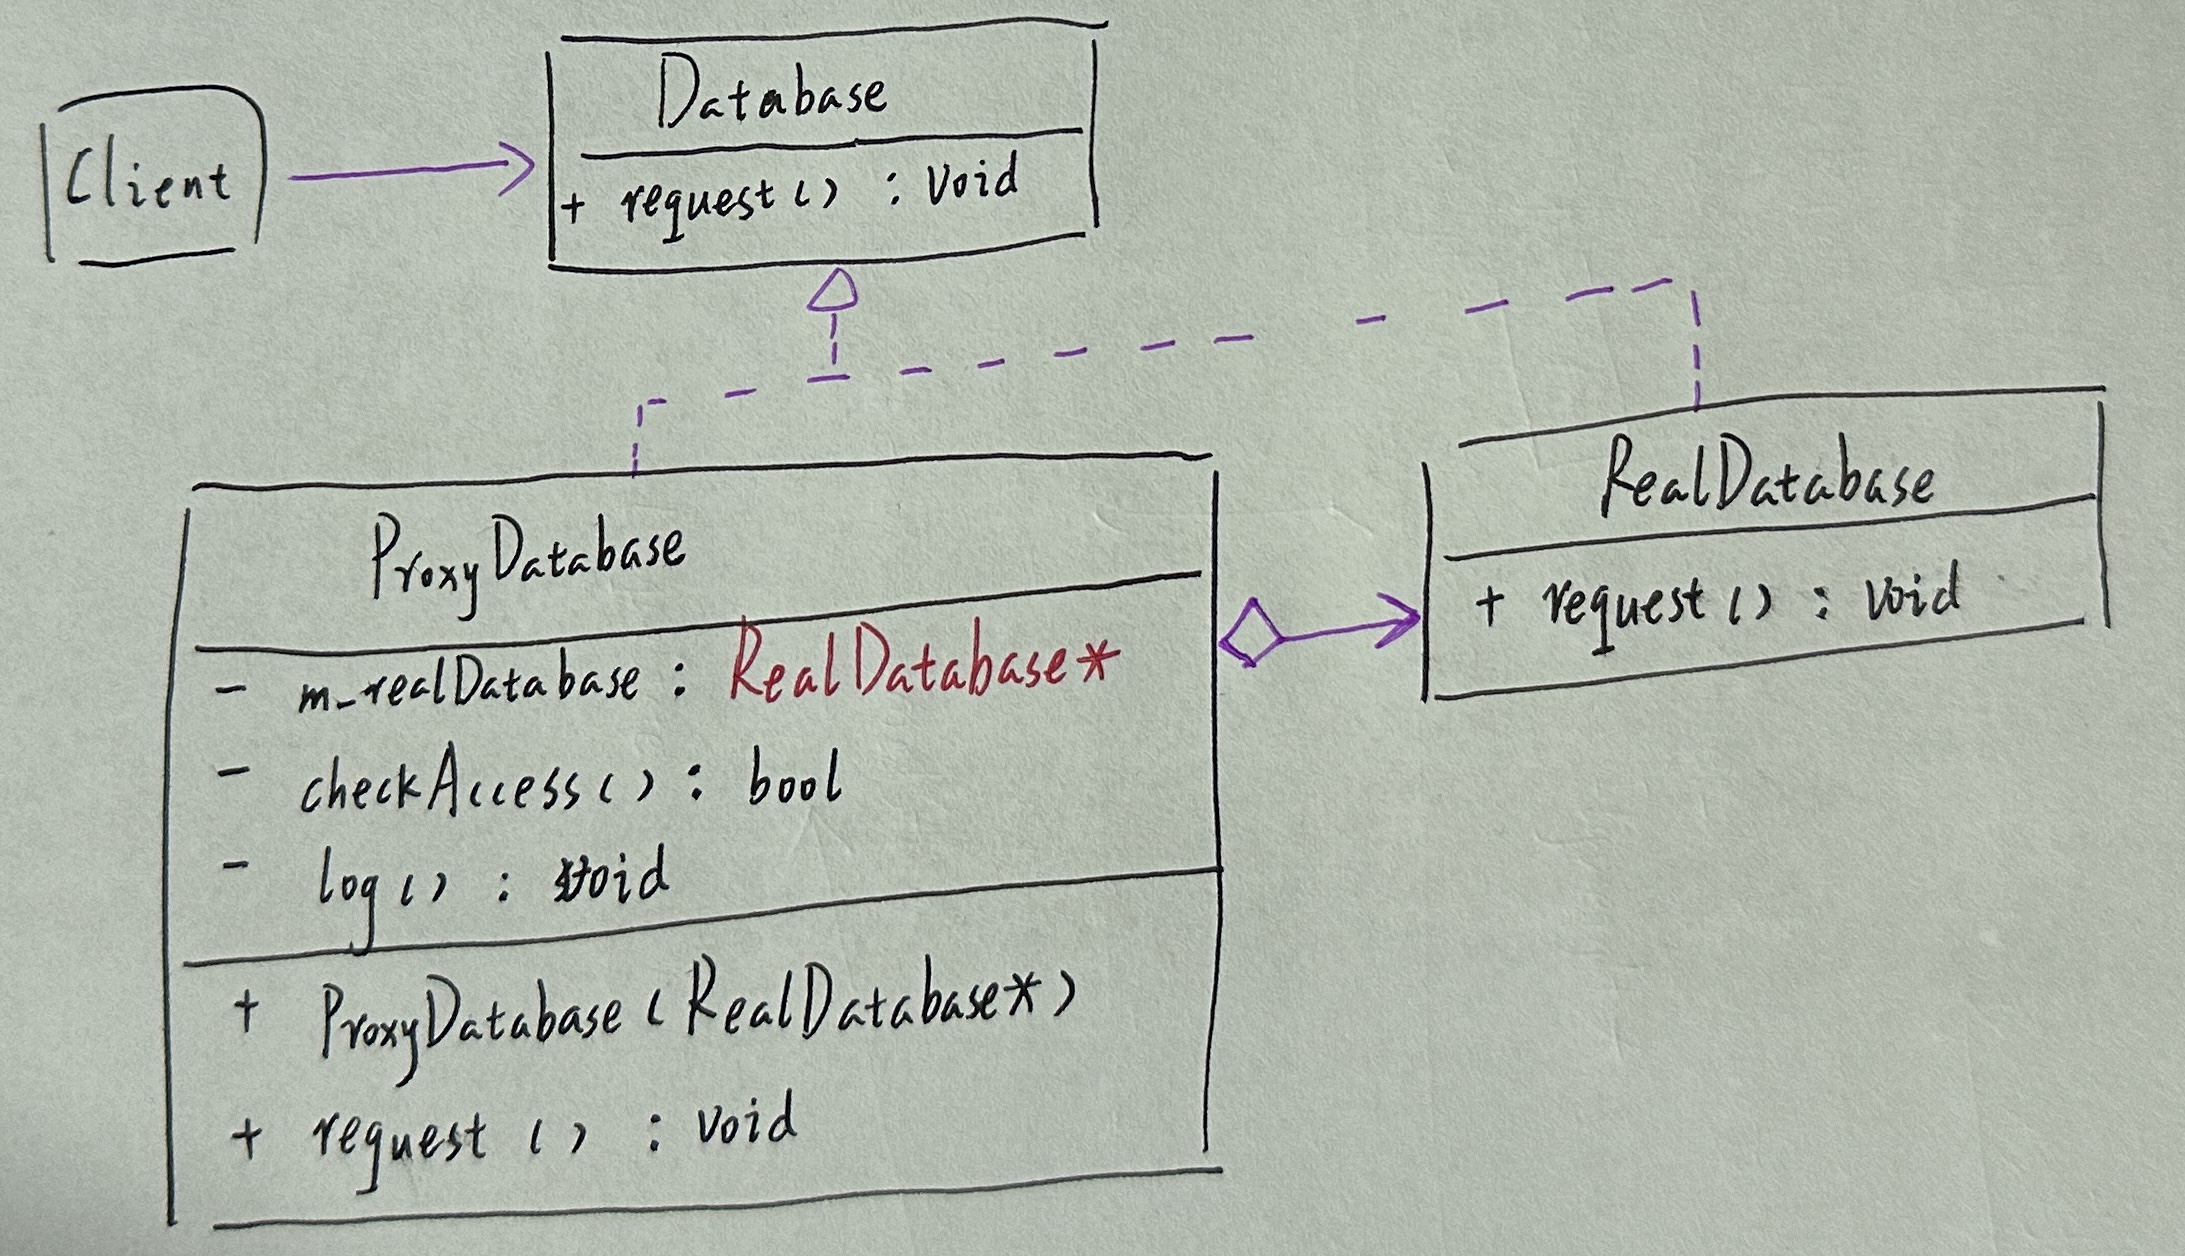 Client
Database
+ request() : Void
ProxyDatabase
- m_realDatabase : RealDatabase*
- checkAccess() : bool
- log() : void
+ ProxyDatabase(RealDatabase*)
+ request() : void
RealDatabase
+ request() : void